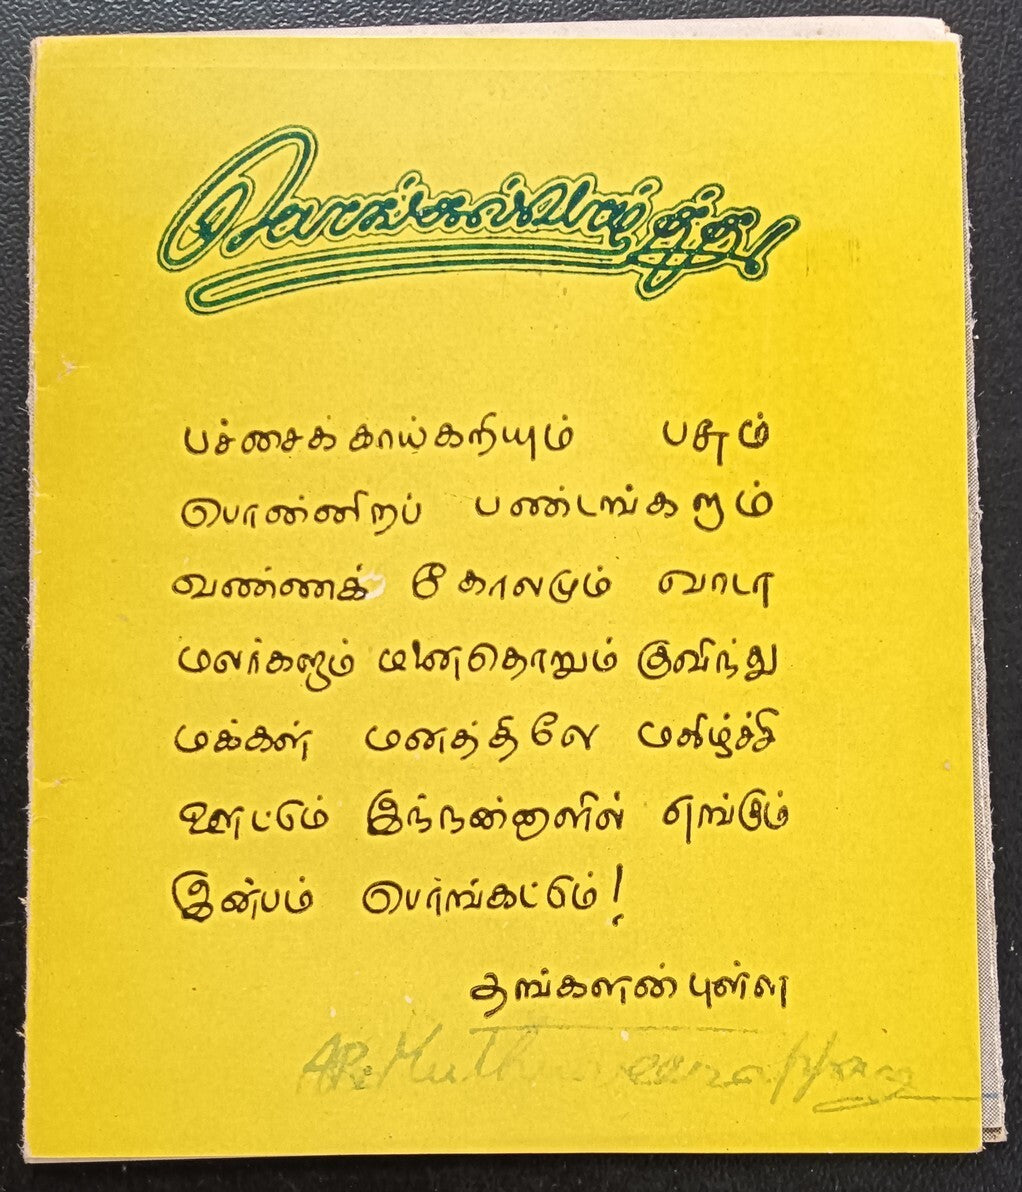 பொங்கல் வாழ்த்து!
பச்சைக் காய்கறியும் பசும்
பொன்னிறப் பண்டங்களும்
வண்ணக் கோலமும் வாடா
மலர்களும் மனைதொறும் குவிந்து
மக்கள் மனத்திலே மகிழ்ச்சி
ஊட்டும் இந்நன்னாளில் எங்கும்
இன்பம் பொங்கட்டும்!
தங்களன்புள்ள
AR. Muthuveerappan